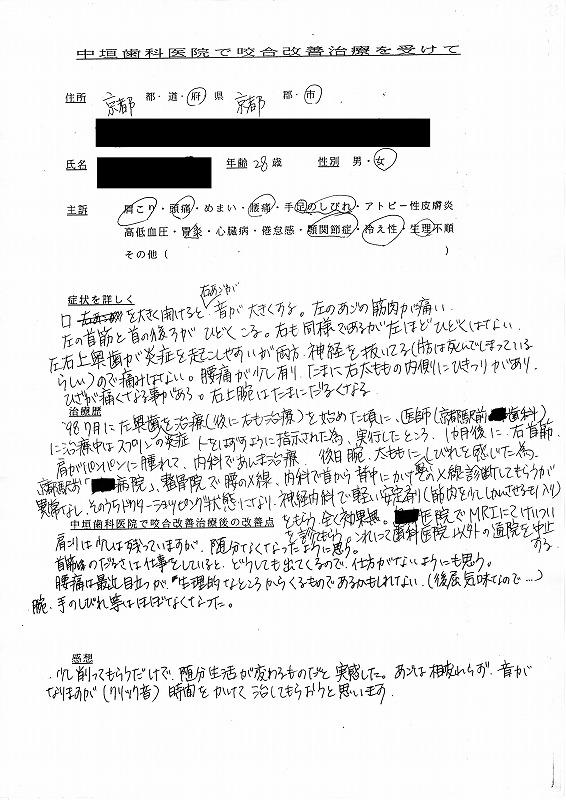 中垣歯科医院で咬合改善治療を受けて
住所 京都 都・道・府 県 京都 郡・市
氏名 年齢 28歳 性別 男・女
主訴 肩こり・頭痛・めまい・腰痛・手足のしびれ・アトピー性皮膚炎
高低血圧・胃炎・心臓病・倦怠感・顎関節症・冷え性・生理不順
その他( )
症状を詳しく 右あごが
口を大きく開けると音が大きくする。左のあごの筋肉が痛い
左の首筋と首の後ろがひどくこる。右も同様であるが左ほどひどくはない
左右上奥歯が炎症を起こしやすいが両方、神経を抜いてる(歯は死んでしまっている
らしい)ので痛みはない。腰痛が少し有り、たまに右太ももの内側にひきつりがあり、
ひざが痛くなる事がある。右上腕はたまにだるくなる
治療歴
'98 7月に左奥歯を治療(後に右も治療)を始めた頃に、医師(京都駅前 歯科)
に治療中はスプリントをはずすように指示された為、実行したところ、1カ月後に、右首筋
肩がパンパンに腫れて、内科であんま治療 後日腕、太ももにしびれを感じた為、
京都駅前「 病院」、整骨院で腰のX線、内科で首から背中にかけてのX線診断してもらうが
異常なし、そのうちドクターショッピング状態になり、神経内科で軽い安定剤(筋肉を少しカンさせる も入り)
をもらう、全く効果無。 医院でMRIにて
中垣歯科医院で咬合改善治療後の改善点
を診てもらう。 歯科医院以外の通院を中止する。
肩こりは少しは残っていますが、随分なくなったように思う。
首筋のだるさは仕事をしていると、どうしても出てくるので、仕方がないようにも思う。
腰痛は最近目立つが生理的なところからくるものであるかもしれない。(後屈気味なので…)
腕、手のしびれ等はほぼなくなった。
感想
少し削ってもらうだけで、随分生活が変わるものだと実感した。あごは相変わらず、音が
なりますが(クリック音)時間をかけて治してもらおうと思います。